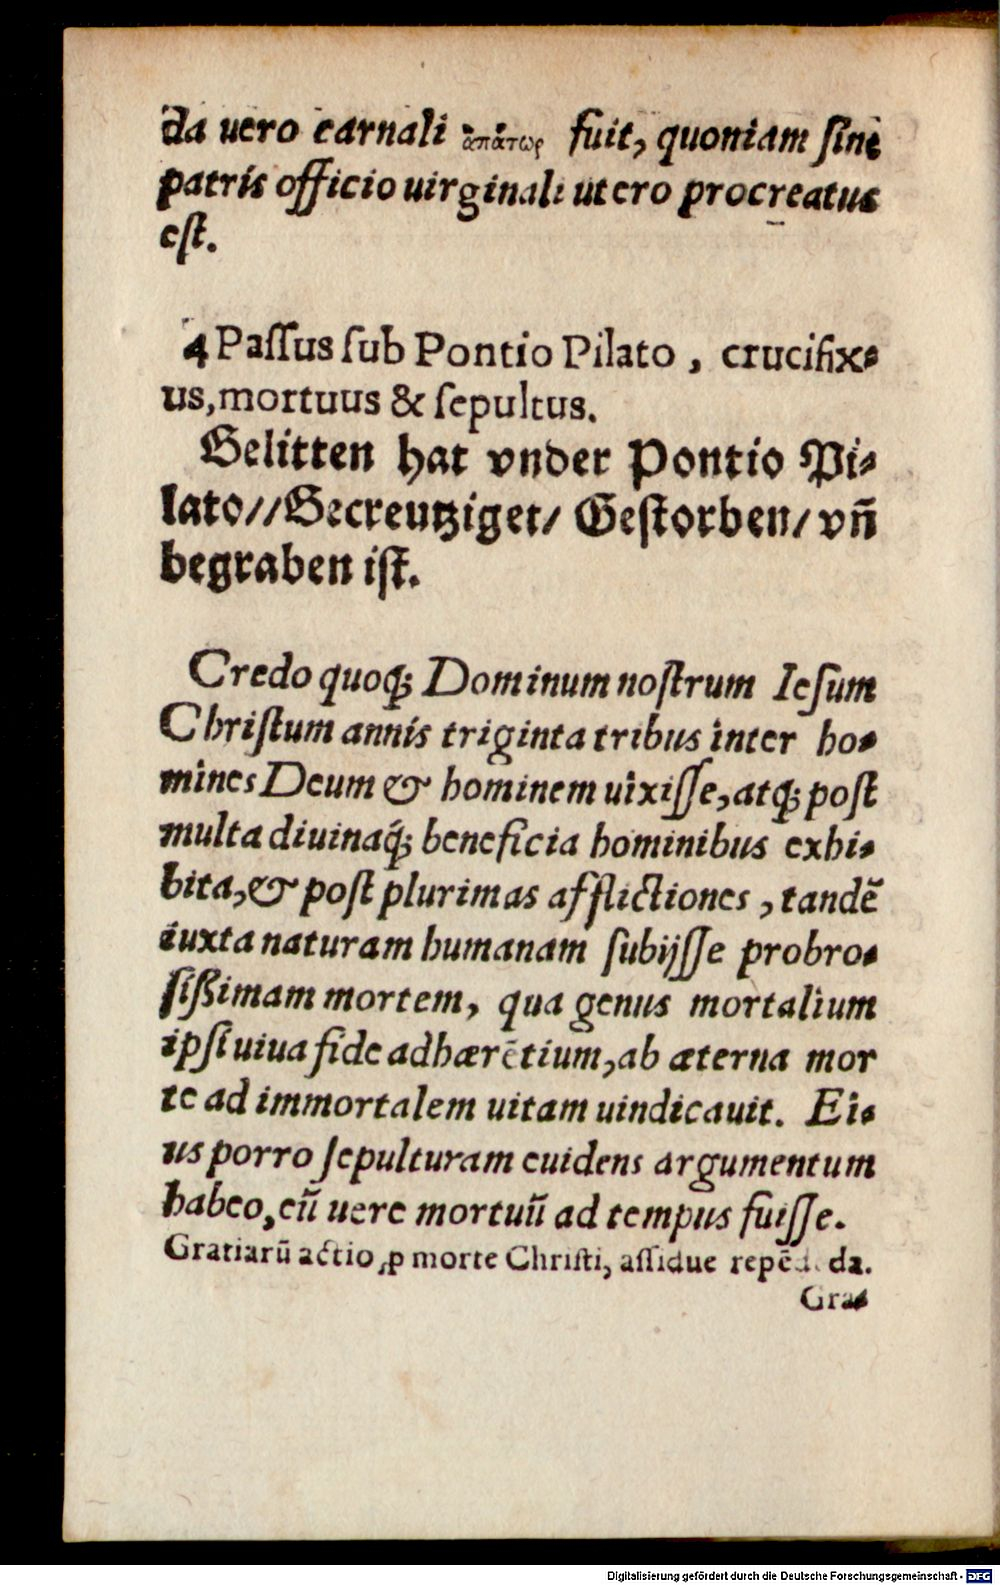 da uero carnali ἀπάτωρ fuit, quoniam ſine
patris officio uirginali utero procreatus
eſt.
4 Paſſus ſub Pontio Pilato, crucifix⸗
us, mortuus & ſepultus.
Gelitten hat vnder Pontio Pi⸗
lato//Gecreutziget/ Geſtorben/ vn̄
begraben iſt.
Credo quoq; Dominum noſtrum Ieſum
Chriſtum annis triginta tribus inter ho⸗
mines Deum & hominem uixiſſe, atq; poſt
multa diuinaq́; beneficia hominibus exhi⸗
bita, & poſt plurimas afflictiones, tandē
iuxta naturam humanam ſubijſſe probro⸗
ſißimam mortem, qua genus mortalium
ipſi uiua fide adhærētium, ab æterna mor
te ad immortalem uitam uindicauit. Ei⸗
us porro ſepulturam euidens argumentum
habeo, eū uere mortuū ad tempus fuiſſe.
Gratiarū actio ꝓ morte Chriſti, aſſidue repēdēda.
Gra⸗
Digitalisierung gefördert durch die Deutsche Forschungsgemeinschaft - DFG